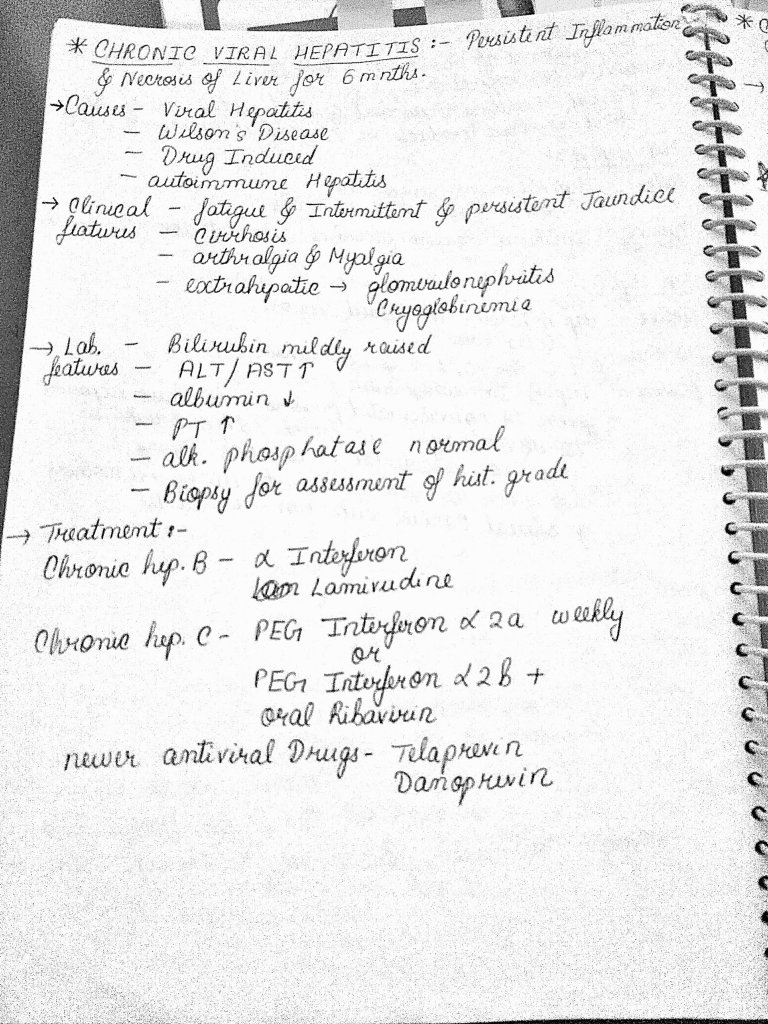 * CHRONIC VIRAL HEPATITIS :- Persistent Inflammation
& Necrosis of Liver for 6 mnths.
→ Causes - Viral Hepatitis
- Wilson's Disease
- Drug Induced
- autoimmune Hepatitis
→ Clinical features - fatigue & Intermittent & persistent Jaundice
- Cirrhosis
- arthralgia & Myalgia
- extrahepatic → glomerulonephritis
Cryoglobinemia
→ Lab. features - Bilirubin mildly raised
- ALT/AST ↑
- albumin ↓
- PT ↑
- alk. phosphatase normal
- Biopsy for assessment of hist. grade
→ Treatment :-
Chronic hep. B - α Interferon
Lamivudine
Chronic hep. C - PEG Interferon α 2a weekly
or
PEG Interferon α 2b +
oral Ribavirin
newer antiviral Drugs - Telaprevin
Danoprevin